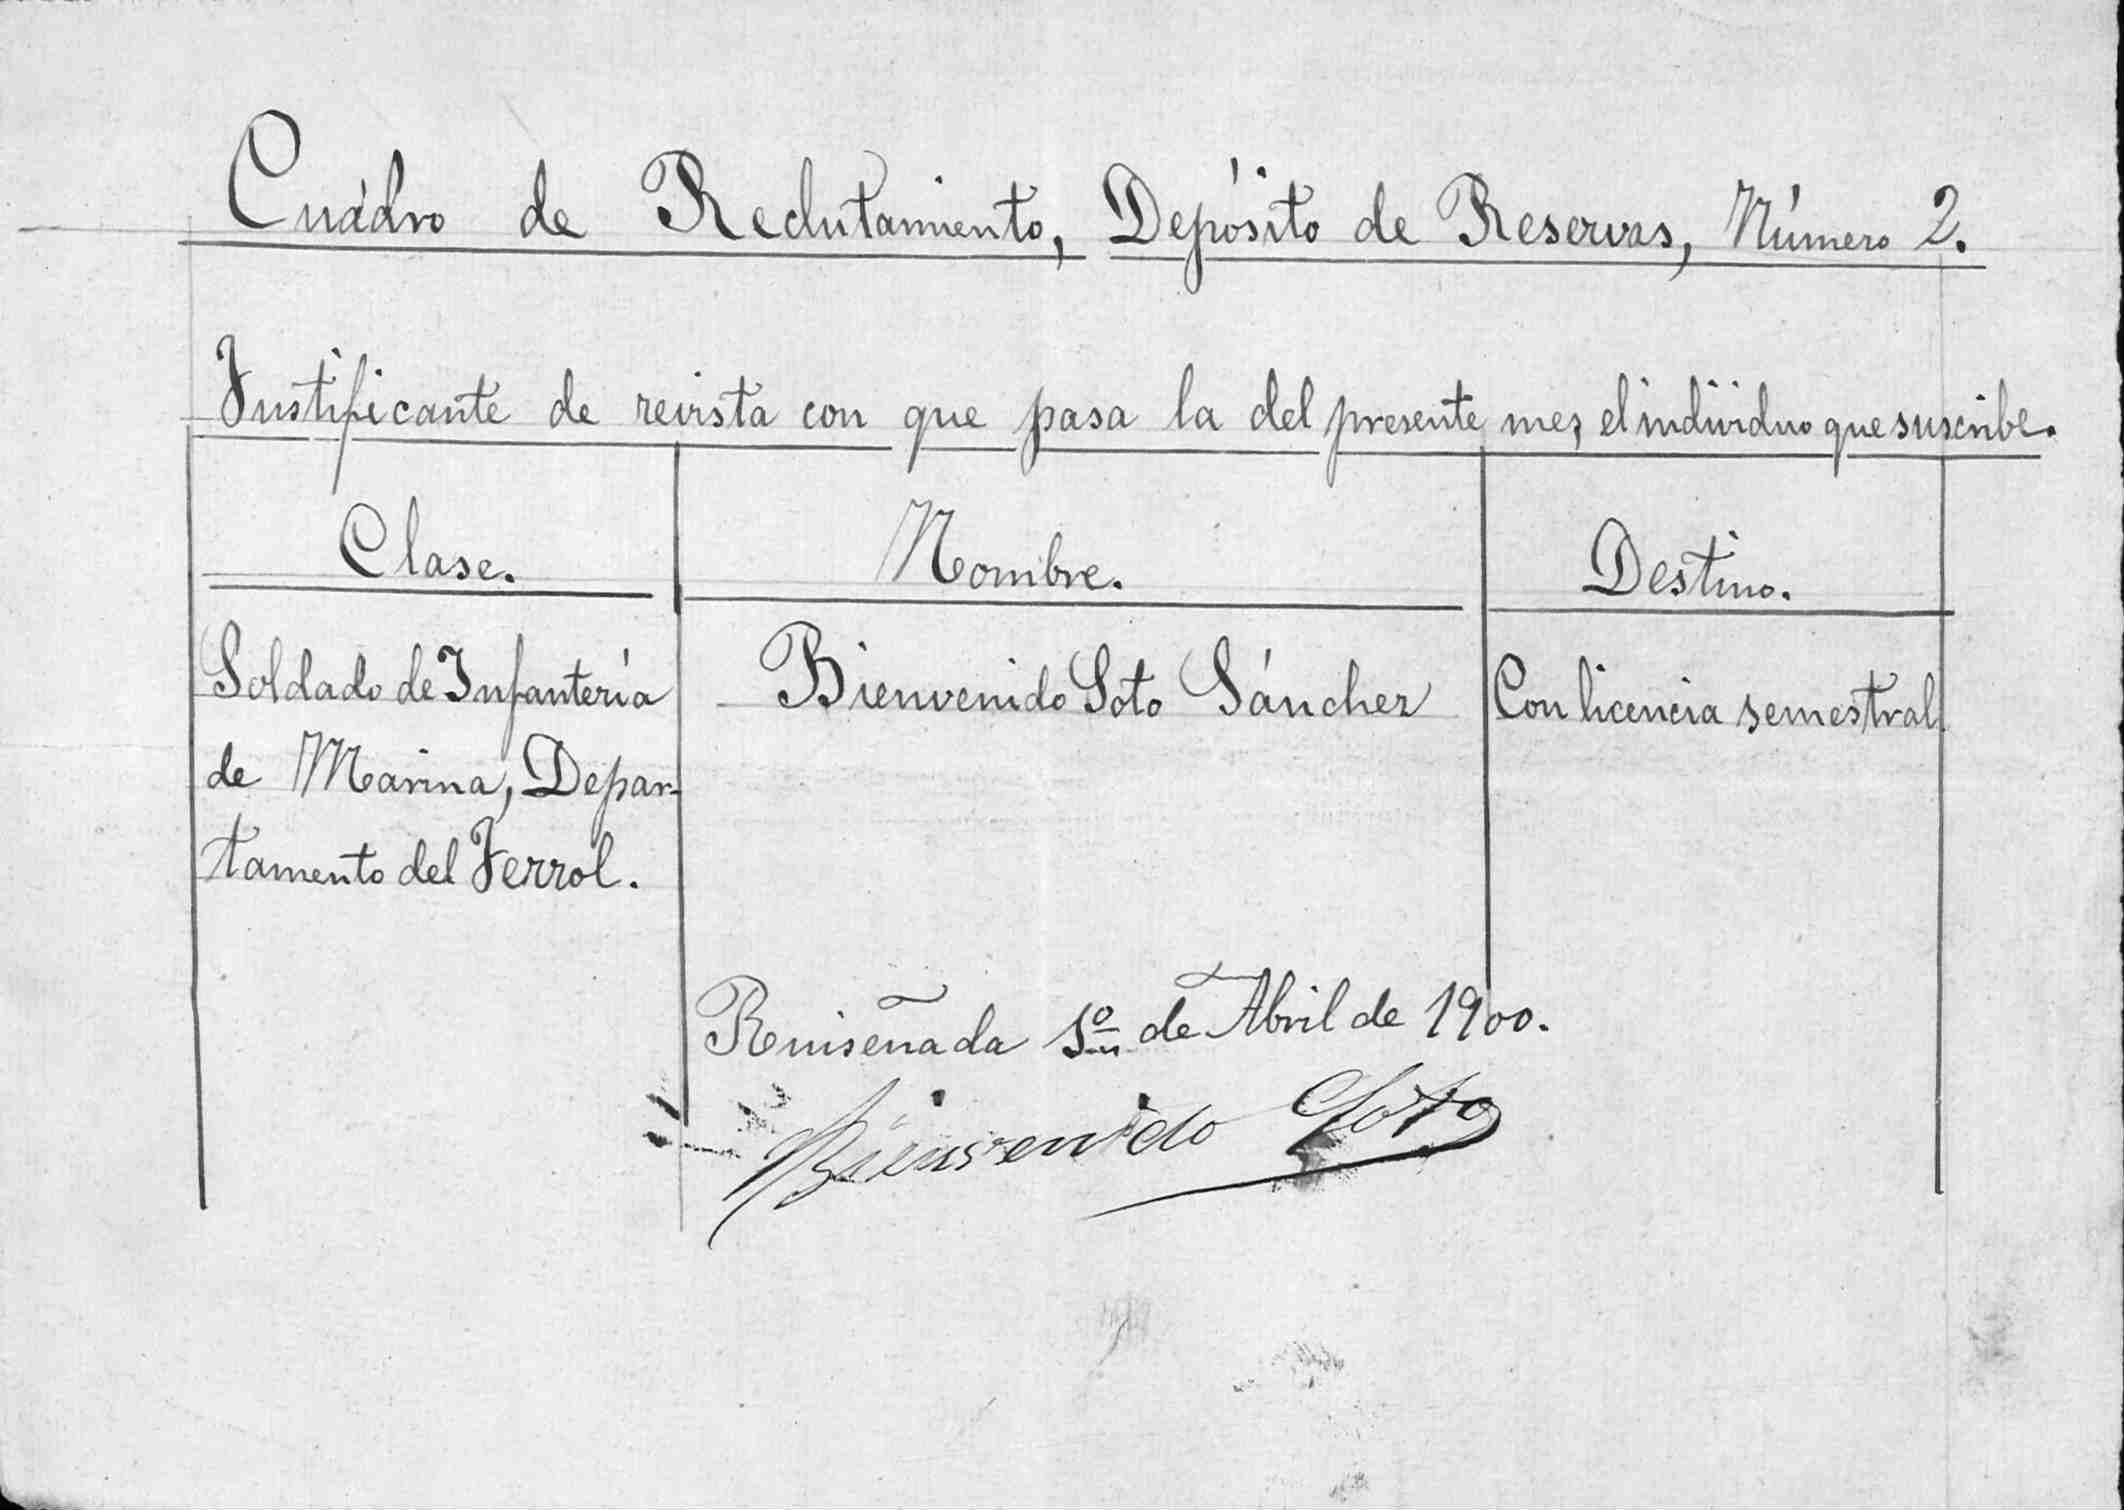 Cuádro de Reclutamiento, Depósito de Reservas, Número 2.
Justificante de revista con que pasa la del presente mes, el individuo que suscribe.
Clase.
Nombre.
Destino.
Soldado de Infantería
de Marina, Depar-
tamento del Ferrol.
Bienvenido Soto Sánchez
Con licencia semestral.
Ruiseñada 1º de Abril de 1900.
Bienvenido Soto